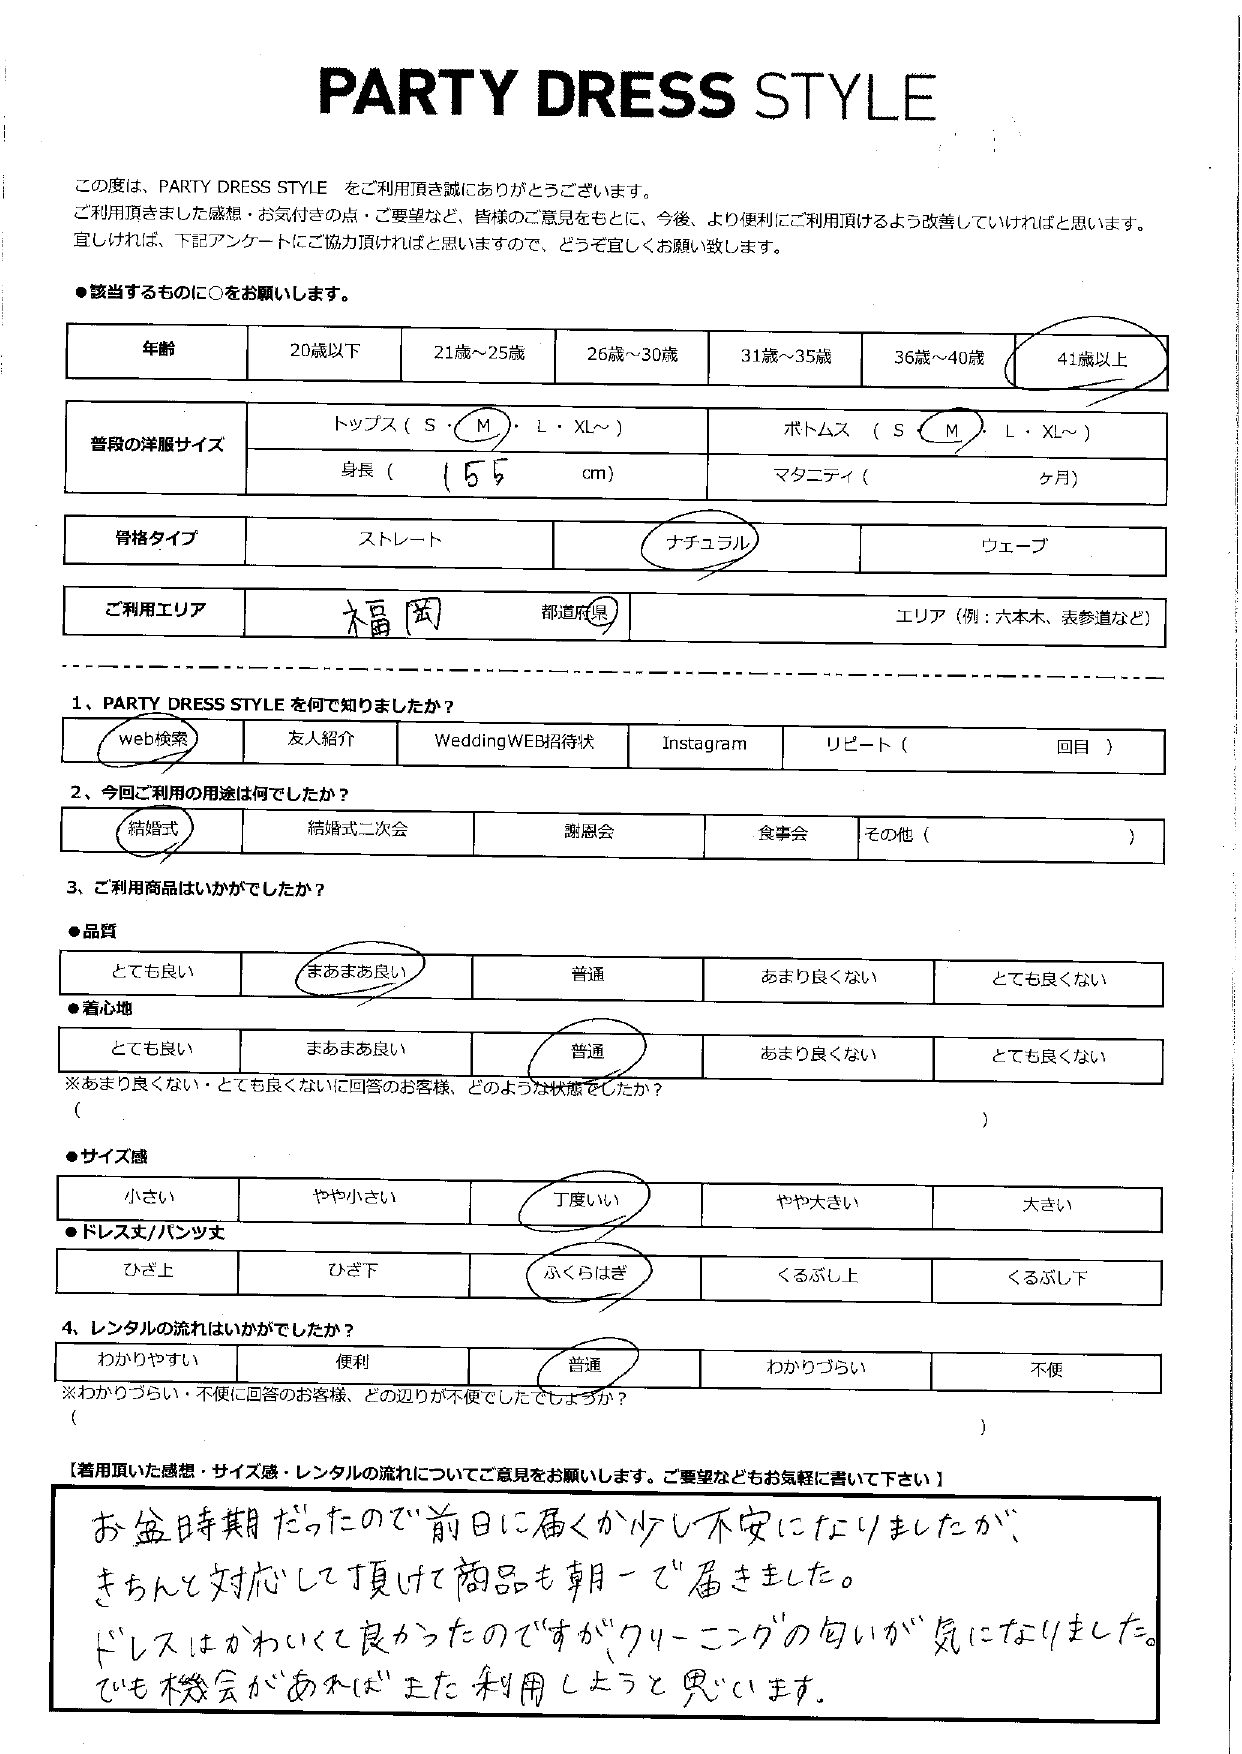 PARTY DRESS STYLE
この度は、PARTY DRESS STYLE をご利用頂き誠にありがとうございます。
ご利用頂きました感想・お気付きの点・ご要望など、皆様のご意見をもとに、今後、より便利にご利用頂けるよう改善していければと思います。
宜しければ、下記アンケートにご協力頂ければと思いますので、どうぞ宜しくお願い致します。
●該当するものに○をお願いします。
年齢 20歳以下 21歳～25歳 26歳～30歳 31歳～35歳 36歳～40歳 41歳以上
普段の洋服サイズ
トップス ( S ・ M ・ L ・ XL～ ) ボトムス ( S ・ M ・ L ・ XL～ )
身長 ( 155 cm) マタニティ ( ヶ月)
骨格タイプ ストレート ナチュラル ウェーブ
ご利用エリア 福岡 都道府県 エリア（例：六本木、表参道など）
1、PARTY DRESS STYLE を何で知りましたか？
web検索 友人紹介 WeddingWEB招待状 Instagram リピート ( 回目 )
2、今回ご利用の用途は何でしたか？
結婚式 結婚式二次会 謝恩会 食事会 その他 ( )
3、ご利用商品はいかがでしたか？
●品質
とても良い まあまあ良い 普通 あまり良くない とても良くない
●着心地
とても良い まあまあ良い 普通 あまり良くない とても良くない
※あまり良くない・とても良くないに回答のお客様、どのような状態でしたか？
( )
●サイズ感
小さい やや小さい 丁度いい やや大きい 大きい
●ドレス丈/パンツ丈
ひざ上 ひざ下 ふくらはぎ くるぶし上 くるぶし下
4、レンタルの流れはいかがでしたか？
わかりやすい 便利 普通 わかりづらい 不便
※わかりづらい・不便に回答のお客様、どの辺りが不便でしたでしょうか？
( )
【着用頂いた感想・サイズ感・レンタルの流れについてご意見をお願いします。ご要望などもお気軽に書いて下さい】
お盆時期だったので前日に届くか少し不安になりましたが、
きちんと対応して頂けて商品も朝一で届きました。
ドレスはかわいくて良かったのですが、クリーニングの匂いが気になりました。
でも機会があればまた利用しようと思います。